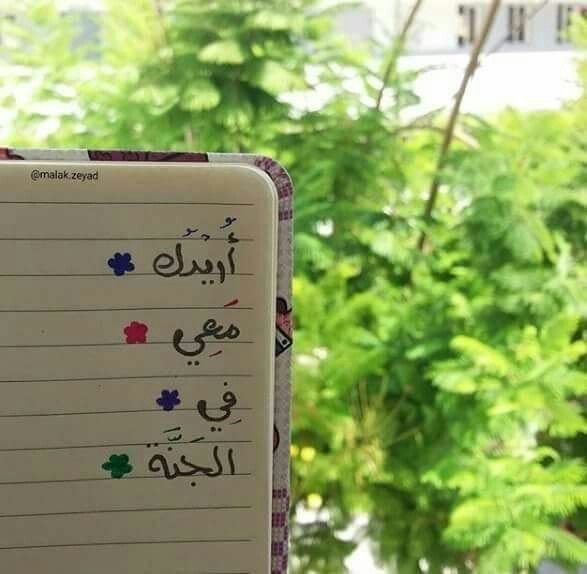 @malak.zeyad
أُريْدُك
مَعِي
فِي
الجَنَّة